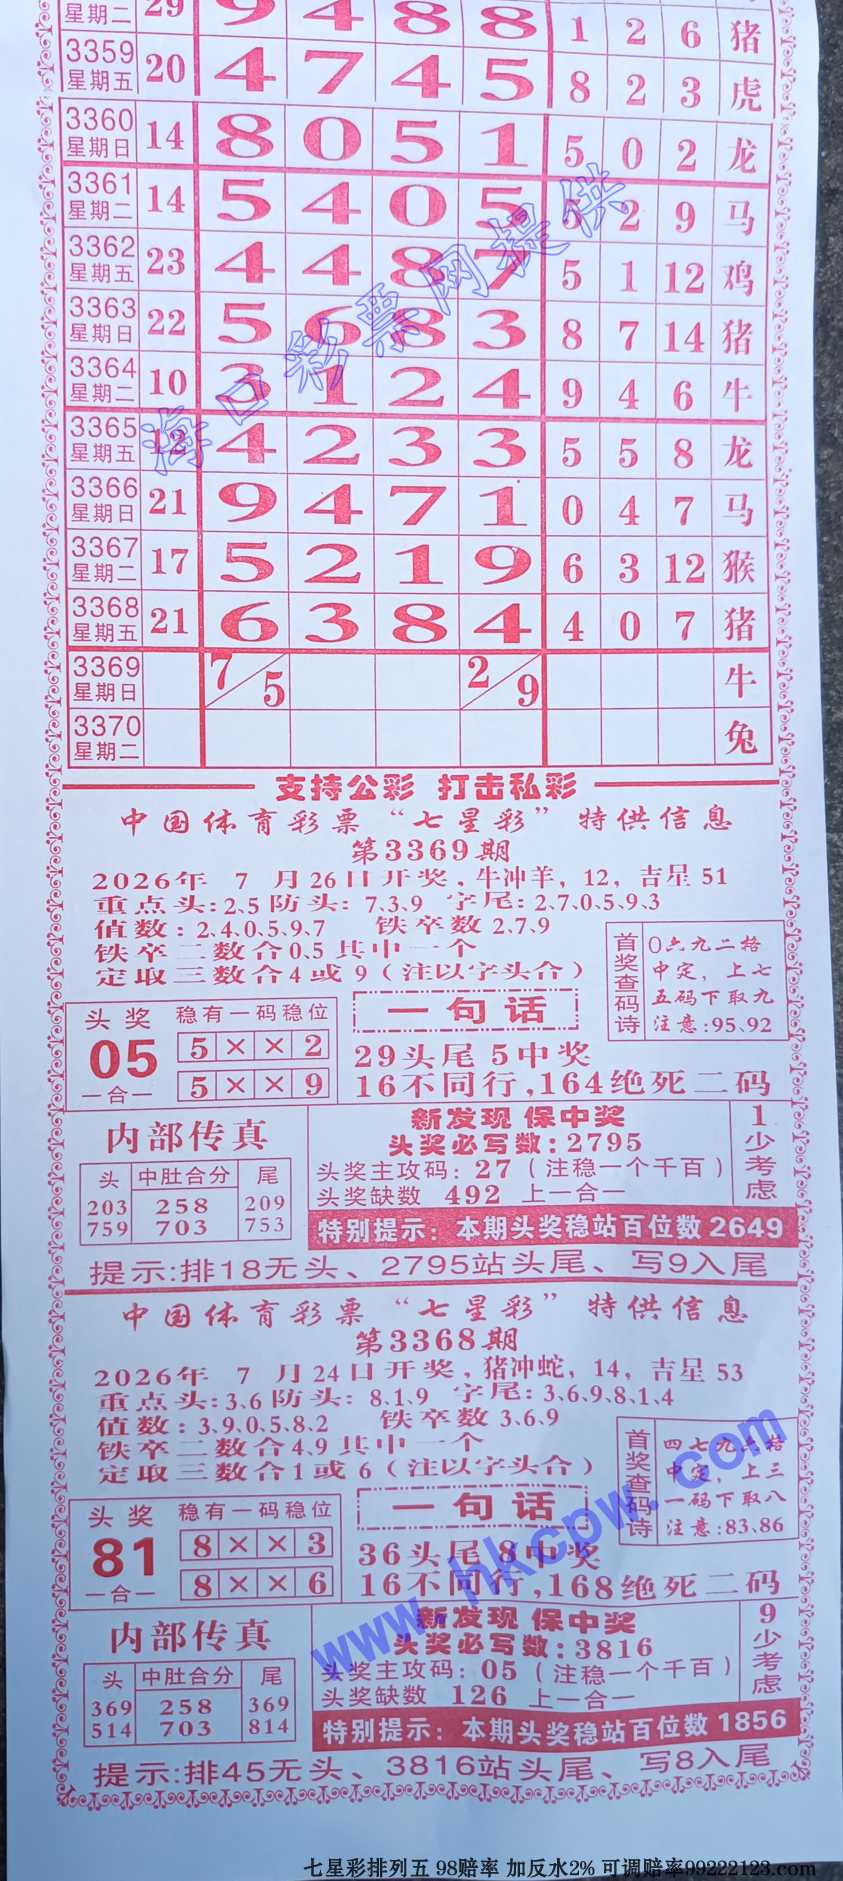 星期二 29 9 4 8 8 1 2 6 猪
3359 星期五 20 4 7 4 5 8 2 3 虎
3360 星期日 14 8 0 5 1 5 0 2 龙
3361 星期二 14 5 4 0 5 5 2 9 马
3362 星期五 23 4 4 8 7 5 1 12 鸡
3363 星期日 22 5 6 8 3 8 7 14 猪
3364 星期二 10 3 1 2 4 9 4 6 牛
3365 星期五 12 4 2 3 3 5 5 8 龙
3366 星期日 21 9 4 7 1 0 4 7 马
3367 星期二 17 5 2 1 9 6 3 12 猴
3368 星期五 21 6 3 8 4 4 0 7 猪
3369 星期日 7/5 2/9 牛
3370 星期二 兔
海口彩票网提供
支持公彩 打击私彩
中国体育彩票“七星彩”特供信息
第3369期
2026年 7 月26日开奖,牛冲羊,12,吉星51
重点头:2、5防头:7、3、9 字尾:2、7、0、5、9、3
值数:2、4、0、5、9、7 铁卒数2、7、9
铁卒二数合0、5其中一个
定取三数合4或9(注以字头合)
首奖查码诗
0六九二格
中定,上七
五码下取九
注意:95、92
头奖
05
一合一
稳有一码稳位
5 × × 2
5 × × 9
一句话
29头尾5中奖
16不同行,164绝死二码
内部传真
头 中肚合分 尾
203 258 209
759 703 753
新发现 保中奖
头奖必写数:2795
头奖主攻码:27(注稳一个千百)
头奖缺数 492 上一合一
1少考虑
特别提示:本期头奖稳站百位数2649
提示:排18无头、2795站头尾、写9入尾
中国体育彩票“七星彩”特供信息
第3368期
2026年 7 月24日开奖,猪冲蛇,14,吉星53
重点头:3、6防头:8、1、9 字尾:3、6、9、8、1、4
值数:3、9、0、5、8、2 铁卒数3、6、9
铁卒二数合4、9其中一个
定取三数合1或6(注以字头合)
首奖查码诗
四七九六格
中定,上三
一码下取八
注意:83、86
头奖
81
一合一
稳有一码稳位
8 × × 3
8 × × 6
一句话
36头尾8中奖
16不同行,168绝死二码
www.hkcpw.com
内部传真
头 中肚合分 尾
369 258 369
514 703 814
新发现 保中奖
头奖必写数:3816
头奖主攻码:05(注稳一个千百)
头奖缺数 126 上一合一
9少考虑
特别提示:本期头奖稳站百位数1856
提示:排45无头、3816站头尾、写8入尾
七星彩排列五 98赔率 加反水2% 可调赔率99222123.com